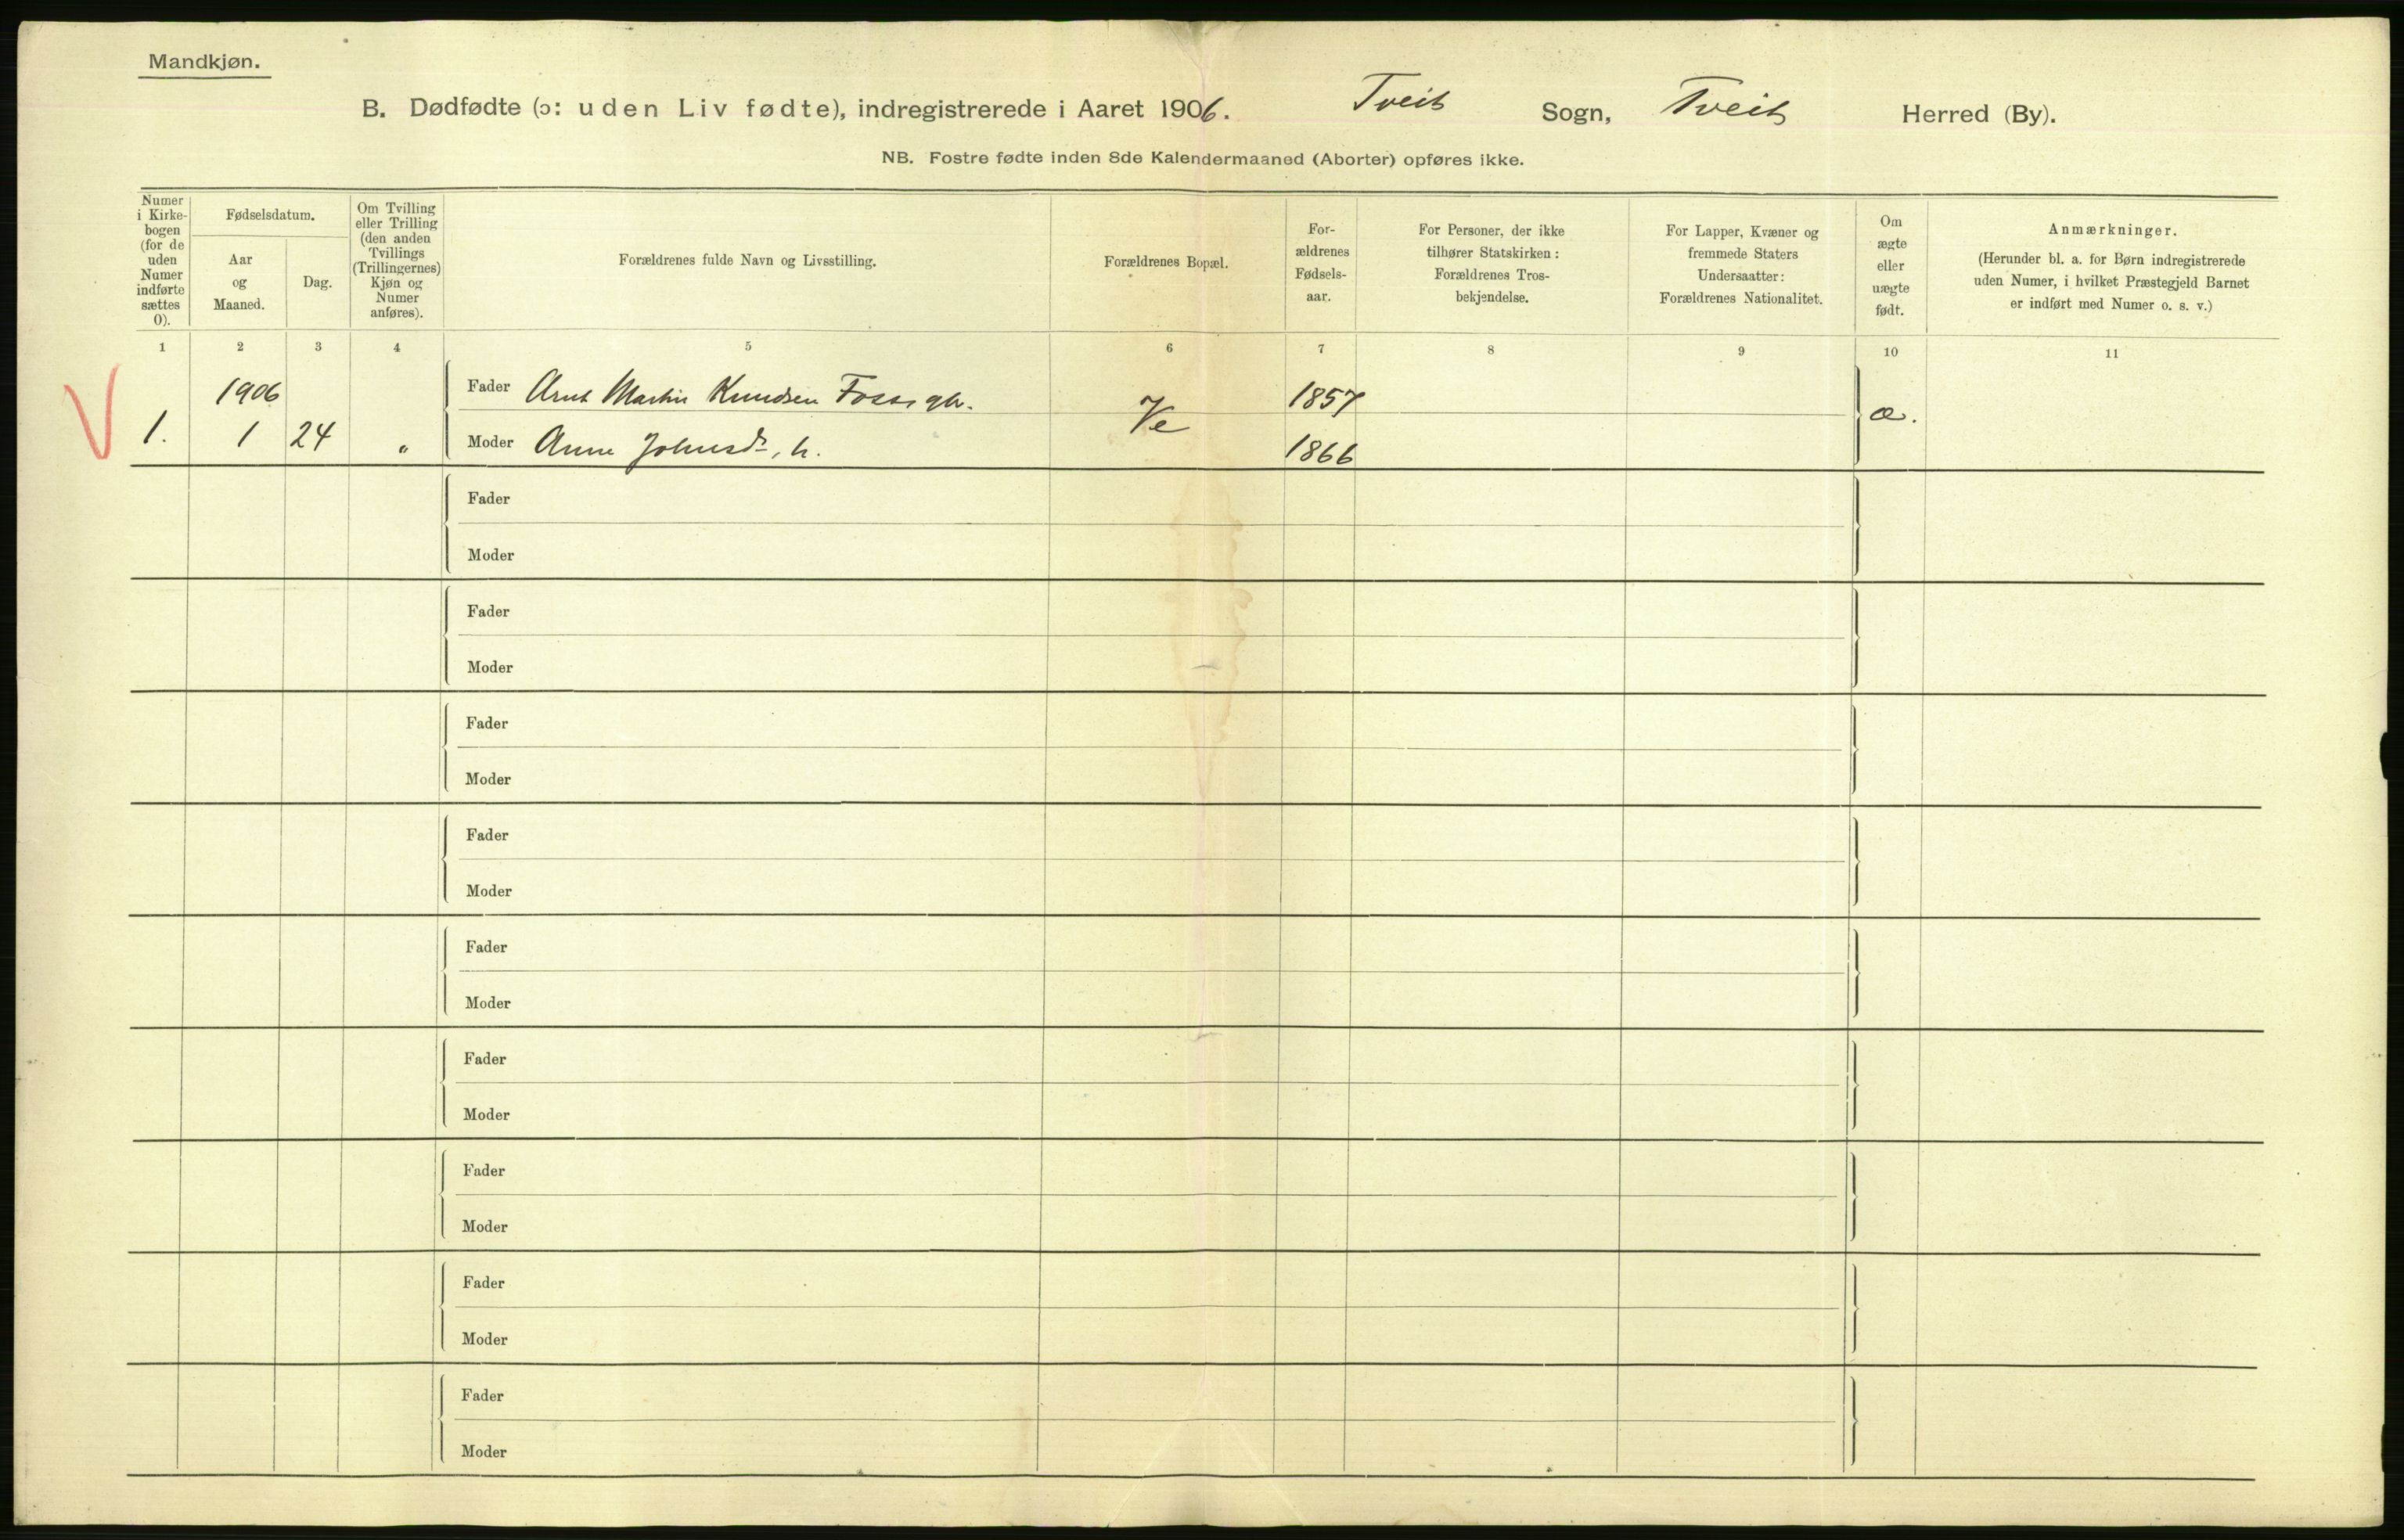 Mandkjøn.
B. Dødfødte (ɔ: uden Liv fødte), indregistrerede i Aaret 1906. Tveit Sogn, Tveit Herred (By).
NB. Fostre fødte inden 8de Kalendermaaned (Aborter) opføres ikke.
Numer
i Kirke-
bogen
(for de
uden
Numer
indførte
sættes
0).
Fødselsdatum.
Aar
og
Maaned.
Dag.
Om Tvilling
eller Trilling
(den anden
Tvillings
(Trillingernes)
Kjøn og
Numer
anføres).
Forældrenes fulde Navn og Livsstilling.
Forældrenes Bopæl.
For-
ældrenes
Fødsels-
aar.
For Personer, der ikke
tilhører Statskirken:
Forældrenes Tros-
bekjendelse.
For Lapper, Kvæner og
fremmede Staters
Undersaatter:
Forældrenes Nationalitet.
Om
ægte
eller
uægte
født.
Anmærkninger.
(Herunder bl. a. for Børn indregistrerede
uden Numer, i hvilket Præstegjeld Barnet
er indført med Numer o. s. v.)
1 2 3 4 5 6 7 8 9 10 11
1906 Fader Arnt Martin Knudsen Foss, gb. 1857
V 1. 1 24 " Moder Anne Johnsdr, h. Ve 1866 æ.
Fader
Moder
Fader
Moder
Fader
Moder
Fader
Moder
Fader
Moder
Fader
Moder
Fader
Moder
Fader
Moder
Fader
Moder